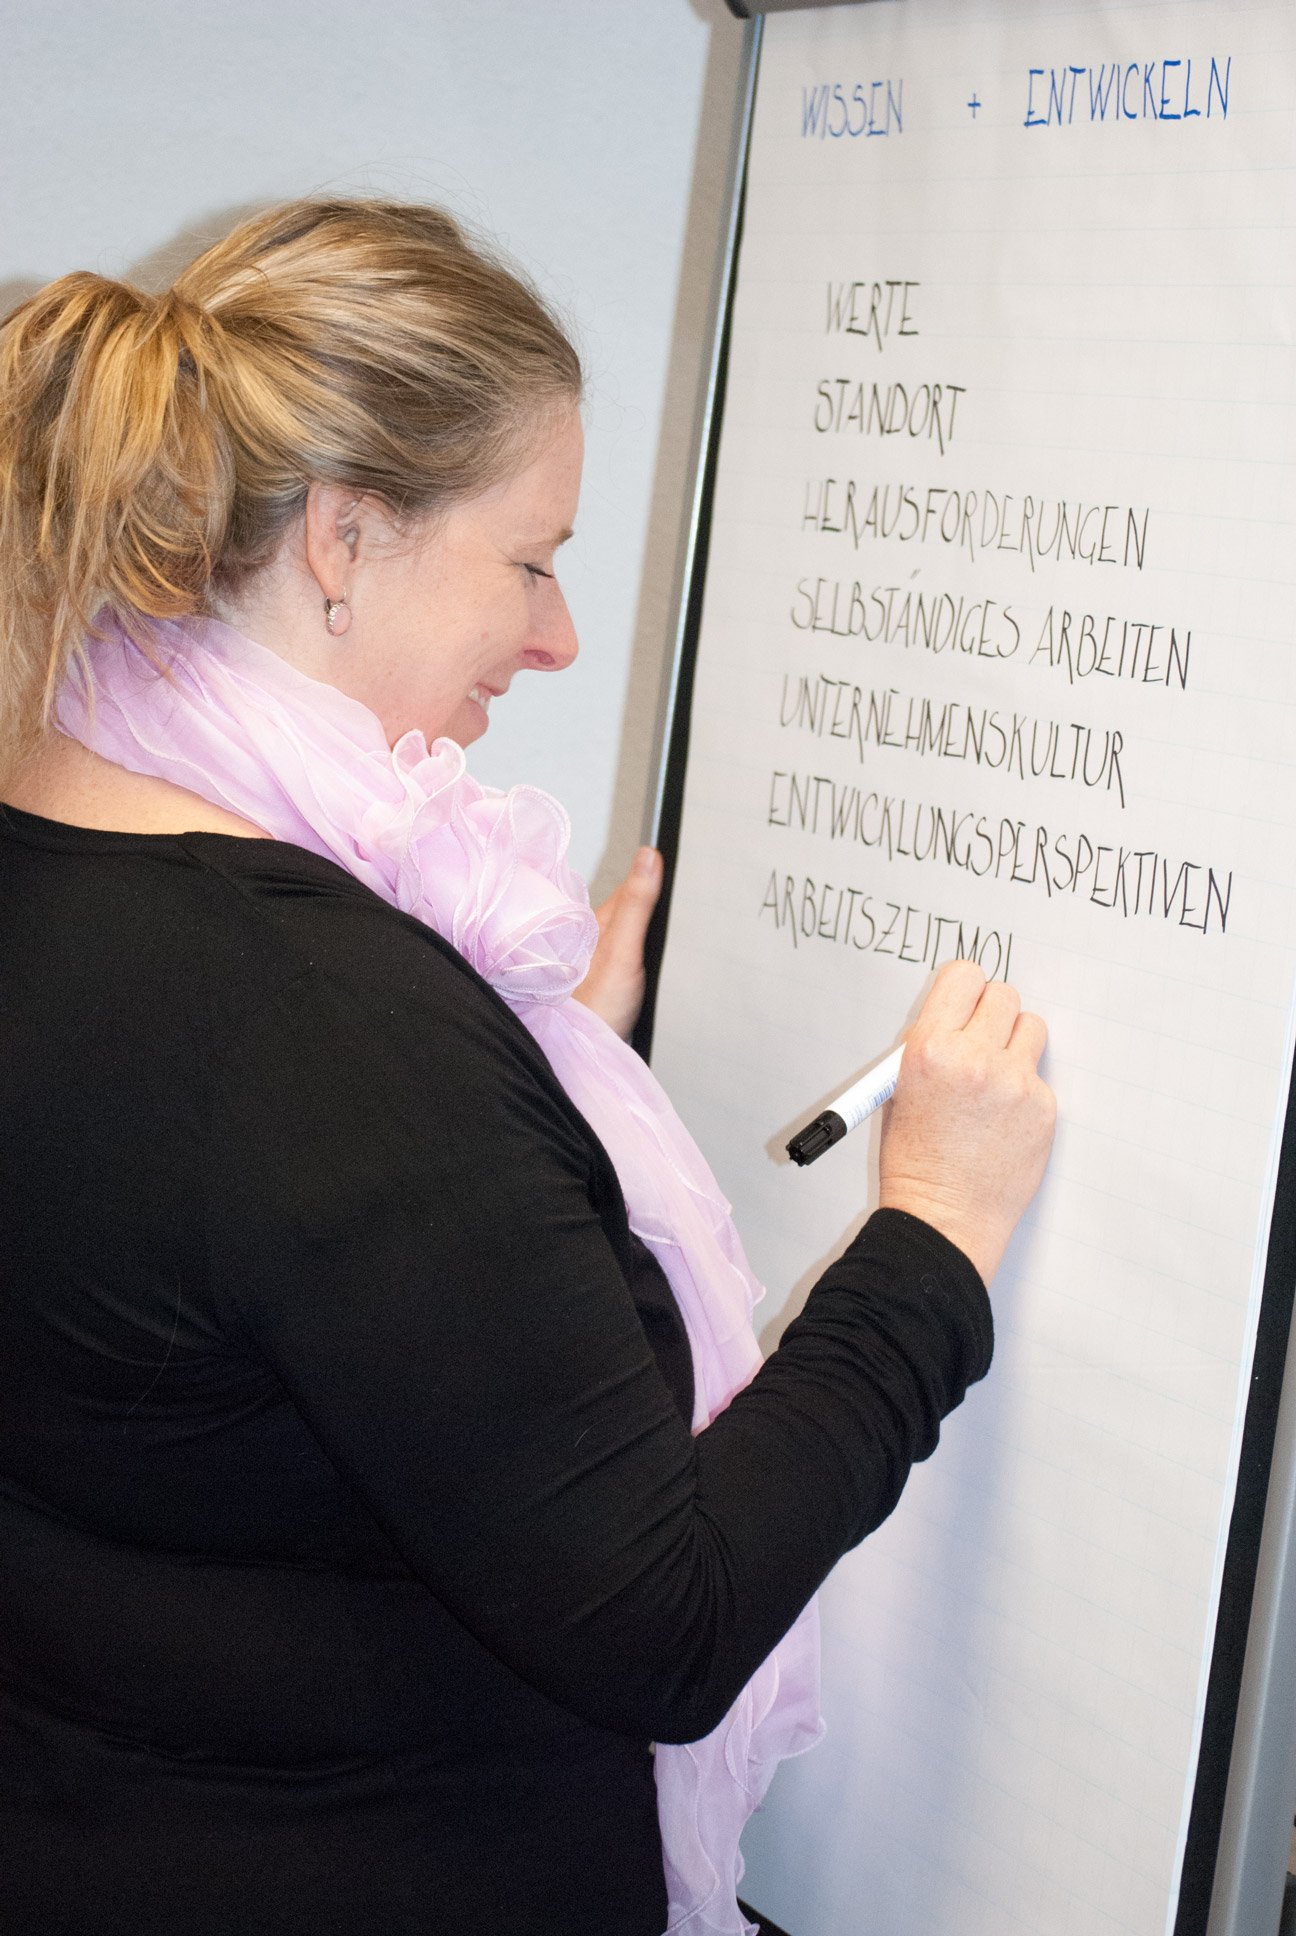 WISSEN + ENTWICKELN
WERTE
STANDORT
HERAUSFORDERUNGEN
SELBSTÄNDIGES ARBEITEN
UNTERNEHMENSKULTUR
ENTWICKLUNGSPERSPEKTIVEN
ARBEITSZEITMO